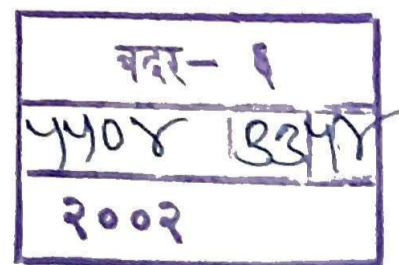 बदर - ६
५५०४ ९३५४
२००२